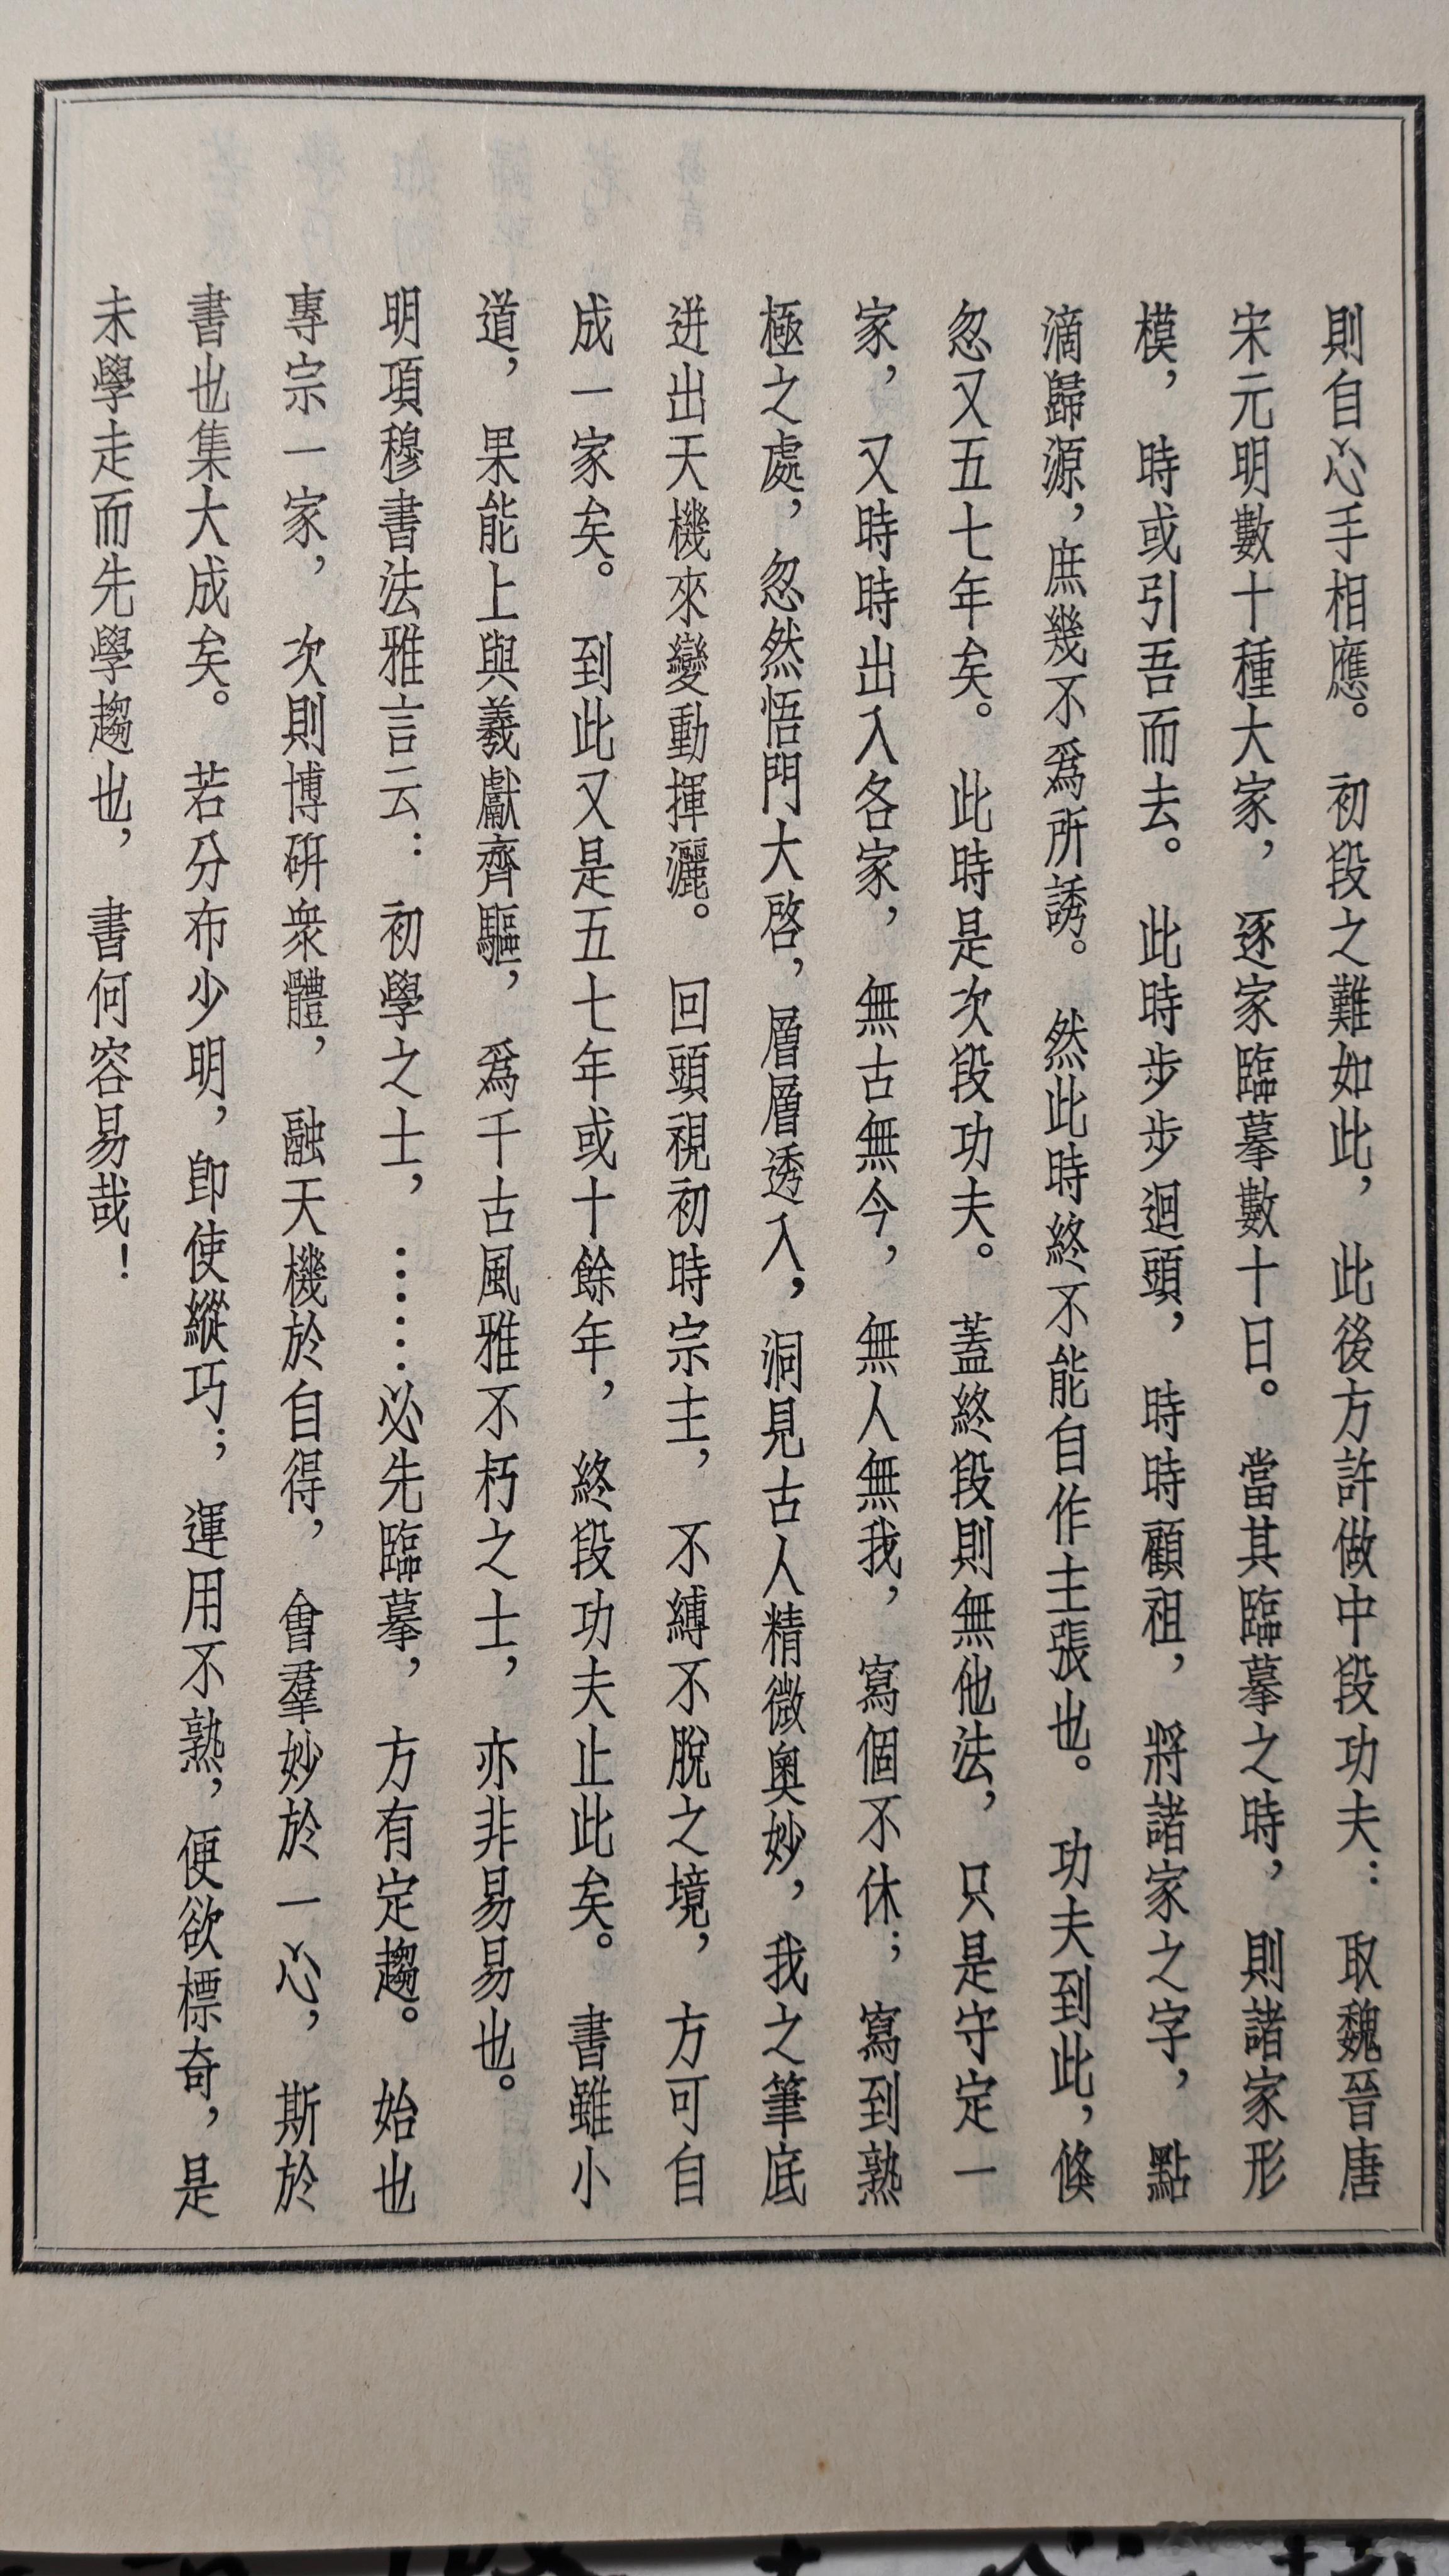 則自心手相應。初段之難如此，此後方許做中段功夫：取魏晉唐
宋元明數十種大家，逐家臨摹數十日。當其臨摹之時，則諸家形
模，時或引吾而去。此時步步迴頭，時時顧祖，將諸家之字，點
滴歸源，庶幾不爲所誘。然此時終不能自作主張也。功夫到此，倏
忽又五七年矣。此時是次段功夫。蓋終段則無他法，只是守定一
家，又時時出入各家，無古無今，無人無我，寫個不休；寫到熟
極之處，忽然悟門大啓，層層透入，洞見古人精微奧妙，我之筆底
迸出天機來變動揮灑。回頭視初時宗主，不縛不脫之境，方可自
成一家矣。到此又是五七年或十餘年，終段功夫止此矣。書雖小
道，果能上與羲獻齊驅，爲千古風雅不朽之士，亦非易易也。
明項穆書法雅言云：初學之士，……必先臨摹，方有定趨。始也
專宗一家，次則博研衆體，融天機於自得，會羣妙於一心，斯於
書也集大成矣。若分布少明，即使縱巧；運用不熟，便欲標奇，是
未學走而先學趨也，書何容易哉！